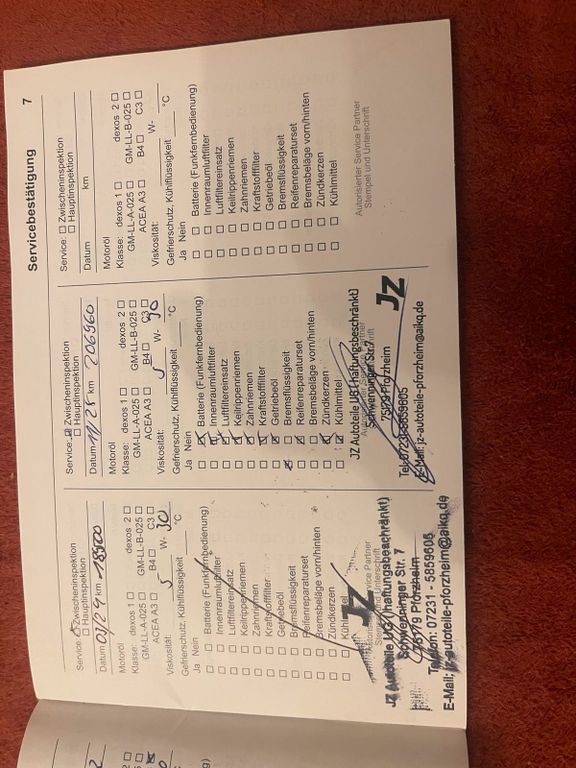 Servicebestätigung
7
Service: Zwischeninspektion
Hauptinspektion
Datum 01/24 km 18500
Motoröl
Klasse: dexos 1 dexos 2
GM-LL-A-025 GM-LL-B-025
ACEA A3 B4 C3
Viskosität: 5 W- 30
Gefrierschutz, Kühlflüssigkeit °C
Ja Nein
Batterie (Funkfernbedienung)
Innenraumluftfilter
Luftfiltereinsatz
Keilrippenriemen
Zahnriemen
Kraftstofffilter
Getriebeöl
Bremsflüssigkeit
Reifenreparaturset
Bremsbeläge vorn/hinten
Zündkerzen
JZ
JZ Autoteile UG (haftungsbeschränkt)
Schwenninger Str. 7
75179 Pforzheim
Telefon: 07231-5859605
E-Mail: jz-autoteile-pforzheim@aikq.de
Service: Zwischeninspektion
Hauptinspektion
Datum 11/25 km 206960
Motoröl
Klasse: dexos 1 dexos 2
GM-LL-A-025 GM-LL-B-025
ACEA A3 B4 C3
Viskosität: 5 W- 30
Gefrierschutz, Kühlflüssigkeit °C
Ja Nein
Batterie (Funkfernbedienung)
Innenraumluftfilter
Luftfiltereinsatz
Keilrippenriemen
Zahnriemen
Kraftstofffilter
Getriebeöl
Bremsflüssigkeit
Reifenreparaturset
Bremsbeläge vorn/hinten
Zündkerzen
Kühlmittel
JZ Autoteile UG (haftungsbeschränkt)
Schwenninger Str. 7
75179 Pforzheim
JZ
E-Mail: jz-autoteile-pforzheim@aikq.de
Service: Zwischeninspektion
Hauptinspektion
Datum km
Motoröl
Klasse: dexos 1 dexos 2
GM-LL-A-025 GM-LL-B-025
ACEA A3 B4 C3
Viskosität: W-
Gefrierschutz, Kühlflüssigkeit °C
Ja Nein
Batterie (Funkfernbedienung)
Innenraumluftfilter
Luftfiltereinsatz
Keilrippenriemen
Zahnriemen
Kraftstofffilter
Getriebeöl
Bremsflüssigkeit
Reifenreparaturset
Bremsbeläge vorn/hinten
Zündkerzen
Kühlmittel
Autorisierter Service Partner
Stempel und Unterschrift